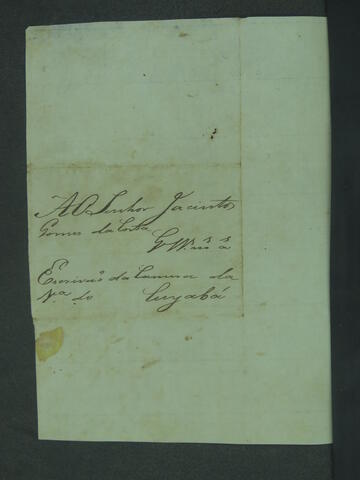 Ao Senhor Jacinto
Gomes da Costa
Escrivaõ da Camara da
Cuyabá